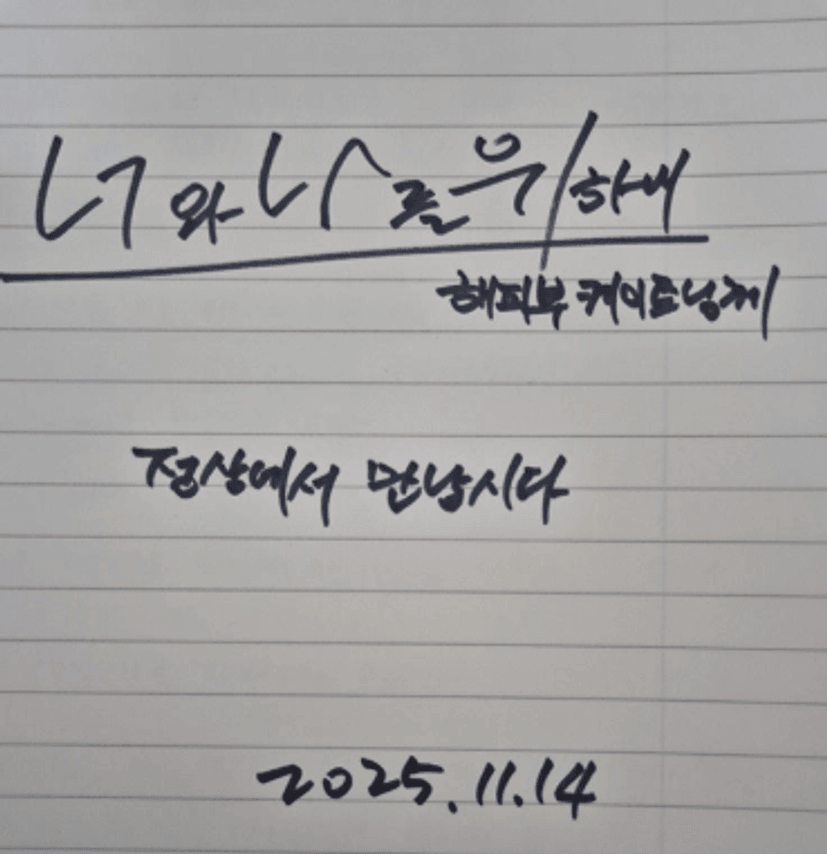 너와 나를 위하여
해피부 케이트님께
정상에서 만납시다
2025.11.14